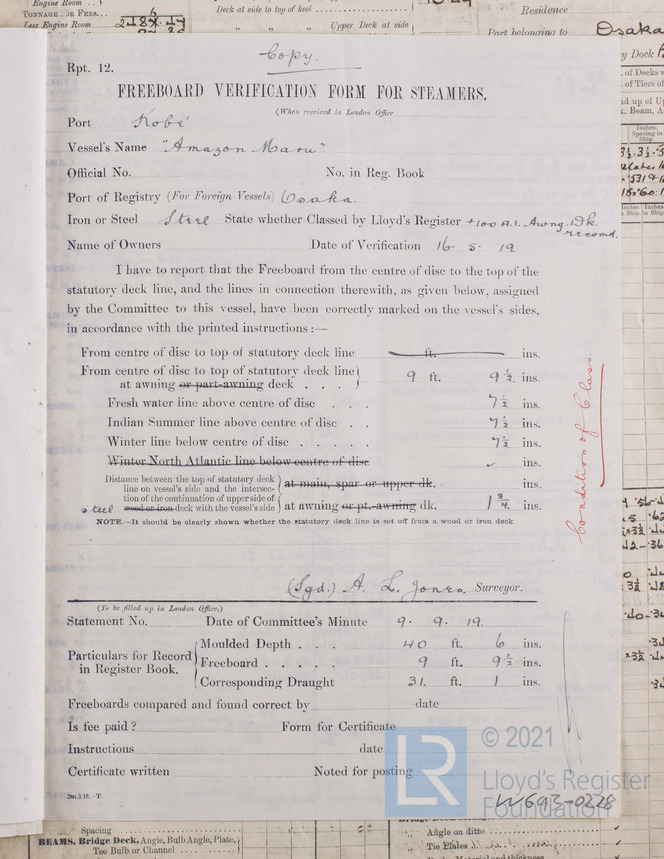 Engine Room
TONNAGE OR FEES...
Less Engine Room
6
2484.44
Deck at side to top of keel
" " Upper Deck at side
Residence
Port belonging to Osaka
y Dock
. of Decks
. of Tiers of
Inches.
Spacing in
Ship.
Copy.
Rpt. 12.
FREEBOARD VERIFICATION FORM FOR STEAMERS.
(When received in London Office
Port Kobé
Vessel's Name "Amazon Maru"
Official No. No. in Reg. Book
Port of Registry (For Foreign Vessels) Osaka
Iron or Steel Steel State whether Classed by Lloyd's Register +100 A.1. Awng. Dk.
recomd.
Name of Owners Date of Verification 16. 5. 19
I have to report that the Freeboard from the centre of disc to the top of the
statutory deck line, and the lines in connection therewith, as given below, assigned
by the Committee to this vessel, have been correctly marked on the vessel's sides,
in accordance with the printed instructions :—
From centre of disc to top of statutory deck line ft. ins.
From centre of disc to top of statutory deck line
at awning or part-awning deck . . . 9 ft. 9 ½ ins.
Fresh water line above centre of disc . . . 7 ½ ins.
Indian Summer line above centre of disc . . 7 ½ ins.
Winter line below centre of disc . . . . 7 ½ ins.
Winter North Atlantic line below centre of disc ins.
Distance between the top of statutory deck
line on vessel's side and the intersec-
tion of the continuation of upper side of
steel wood or iron deck with the vessel's side
at main, spar or upper dk. ins.
at awning or pt.-awning dk. 1 ¾ ins.
NOTE.—It should be clearly shown whether the statutory deck line is set off from a wood or iron deck
Condition of Class.
(Sgd.) A. L. Jones. Surveyor.
(To be filled up in London Office.)
Statement No. Date of Committee's Minute 9. 9. 19.
Particulars for Record
in Register Book.
Moulded Depth . . . 40 ft. 6 ins.
Freeboard . . . . . 9 ft. 9 ½ ins.
Corresponding Draught 31. ft. 1 ins.
Freeboards compared and found correct by date
Is fee paid? Form for Certificate
Instructions date
Certificate written Noted for posting
2m.3,18.—T.
LR © 2021
Lloyd's Register
Foundation
W693-0228
Spacing
BEAMS, Bridge Deck, Angle, Bulb Angle, Plate,
Tee Bulb or Channel
Angle on ditto
" Tie Plates